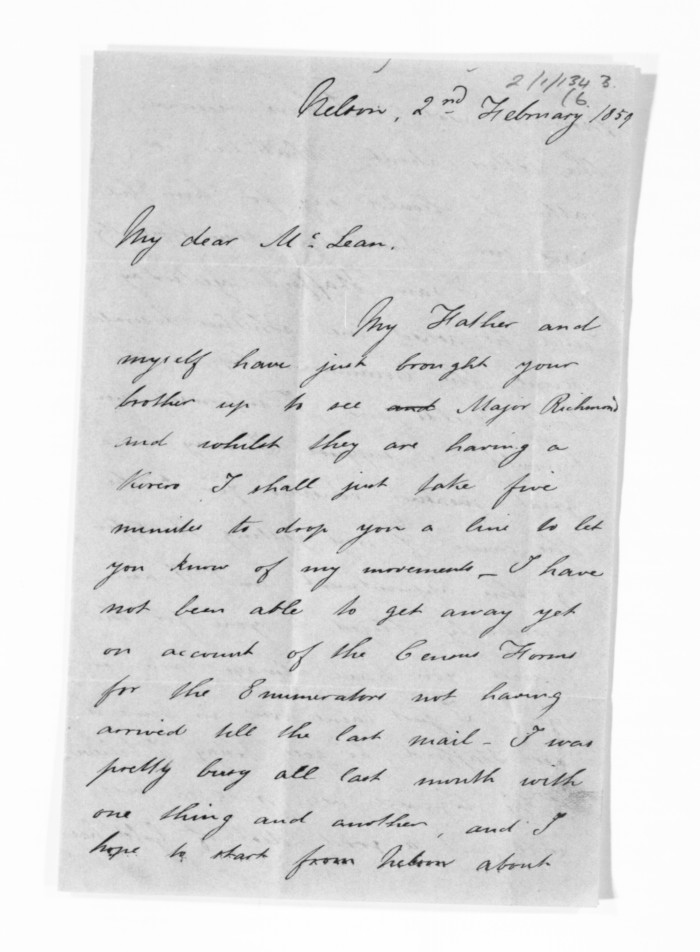 2/1/134 3.
(6
Nelson, 2nd February 1859
My dear Mc. Lean.
My Father and
myself have just brought your
brother up to see and Major Richmond
and whilst they are having a
Korero I shall just take five
minutes to drop you a line to let
you know of my movements_ I have
not been able to get away yet
on account of the Census Forms
for the Enumerators not having
arrived till the last mail_ I was
pretty busy all last month with
one thing and another, and I
hope to start from Nelson about